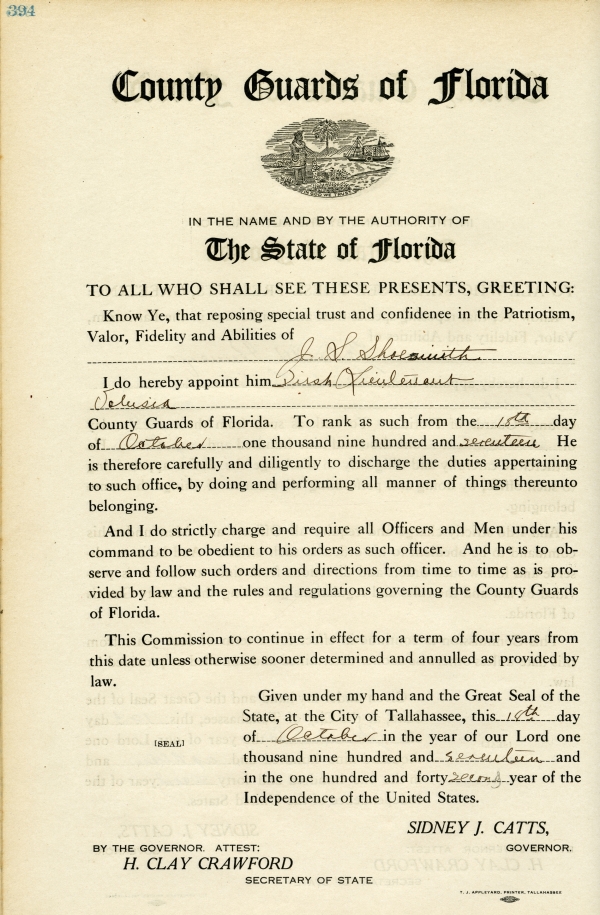 394
County Guards of Florida
IN THE NAME AND BY THE AUTHORITY OF
The State of Florida
TO ALL WHO SHALL SEE THESE PRESENTS, GREETING:
Know Ye, that reposing special trust and confidence in the Patriotism,
Valor, Fidelity and Abilities of
J. S. Shoesmith
I do hereby appoint him First Lieutenant
Volusia
County Guards of Florida. To rank as such from the 10th day
of October one thousand nine hundred and seventeen He
is therefore carefully and diligently to discharge the duties appertaining
to such office, by doing and performing all manner of things thereunto
belonging.
And I do strictly charge and require all Officers and Men under his
command to be obedient to his orders as such officer. And he is to ob-
serve and follow such orders and directions from time to time as is pro-
vided by law and the rules and regulations governing the County Guards
of Florida.
This Commission to continue in effect for a term of four years from
this date unless otherwise sooner determined and annulled as provided by
law.
Given under my hand and the Great Seal of the
State, at the City of Tallahassee, this 10th day
[SEAL] of October in the year of our Lord one
thousand nine hundred and seventeen and
in the one hundred and forty second year of the
Independence of the United States.
SIDNEY J. CATTS,
BY THE GOVERNOR. ATTEST: GOVERNOR.
H. CLAY CRAWFORD
SECRETARY OF STATE
T. J. APPLEYARD, PRINTER, TALLAHASSEE